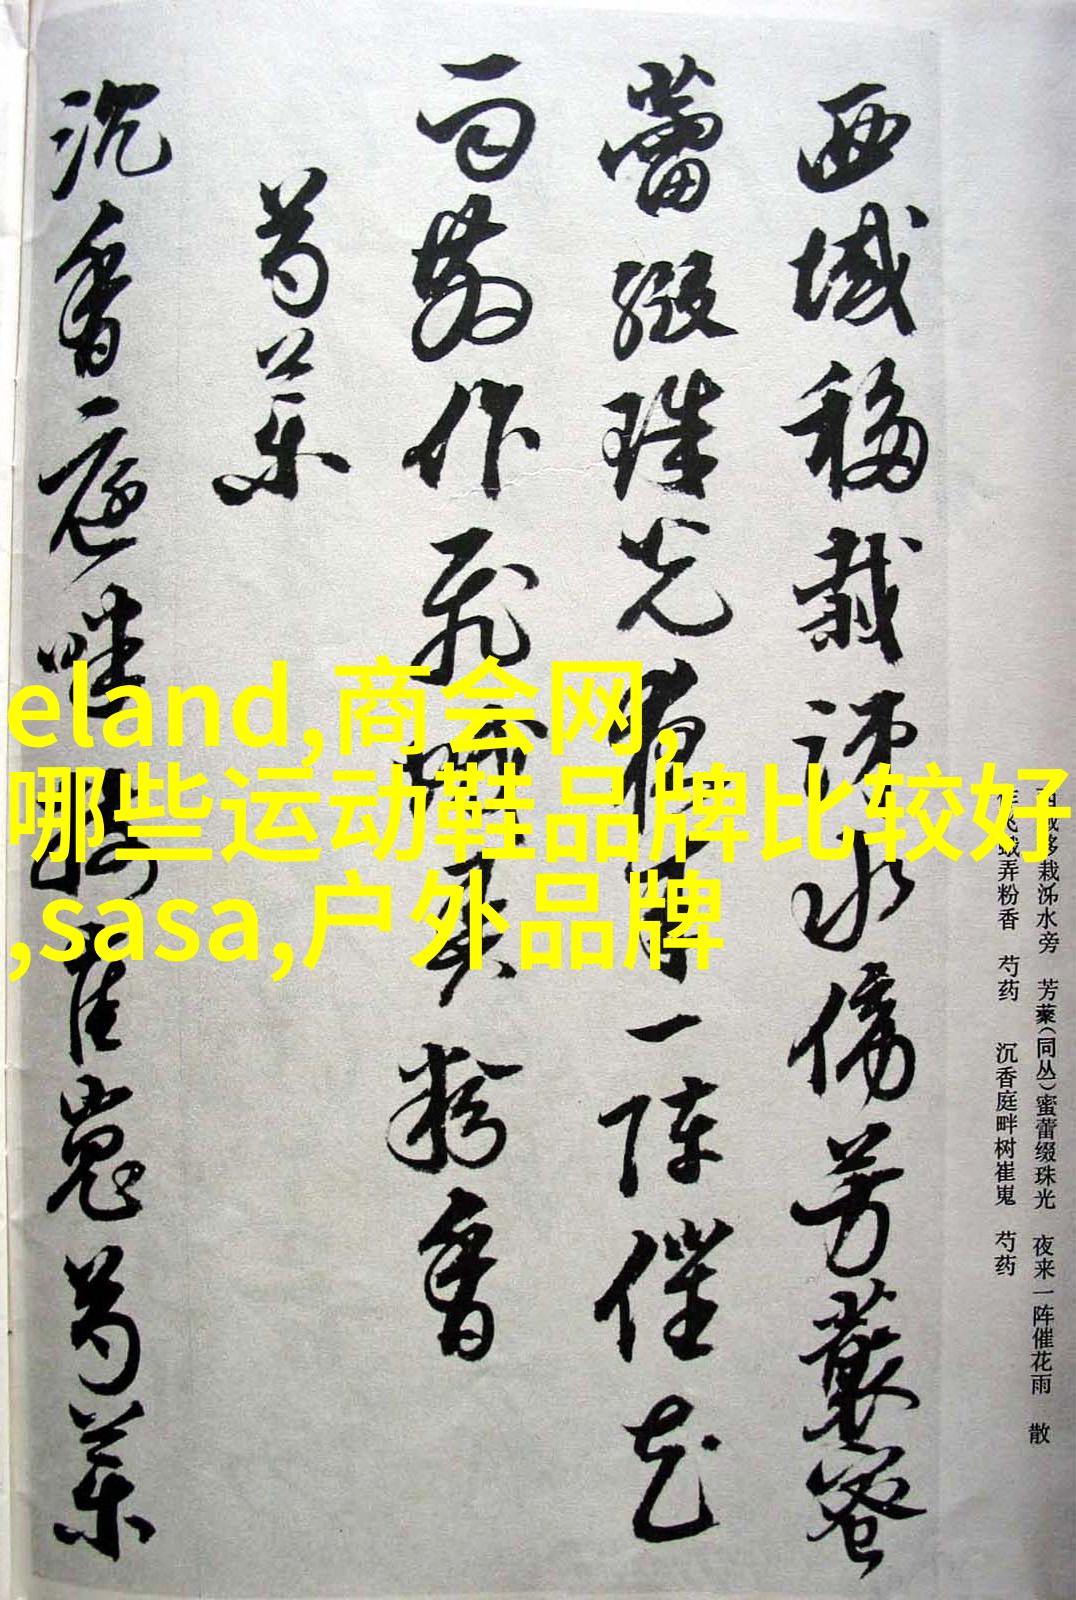 西域移栽泲水旁 芳藂(同丛)蜜蕾缀珠光 夜来一阵催花雨 散
作飞蛾弄粉香 芍药 沉香庭畔树崔嵬 芍药
西域移栽泲水傍芳藂蜜
蕾缀珠光夜来一阵催花
雨散作飛蛾弄粉香
芍药
沉香庭畔树崔嵬芍药
eland,商会网,
哪些运动鞋品牌比较好
,sasa,户外品牌